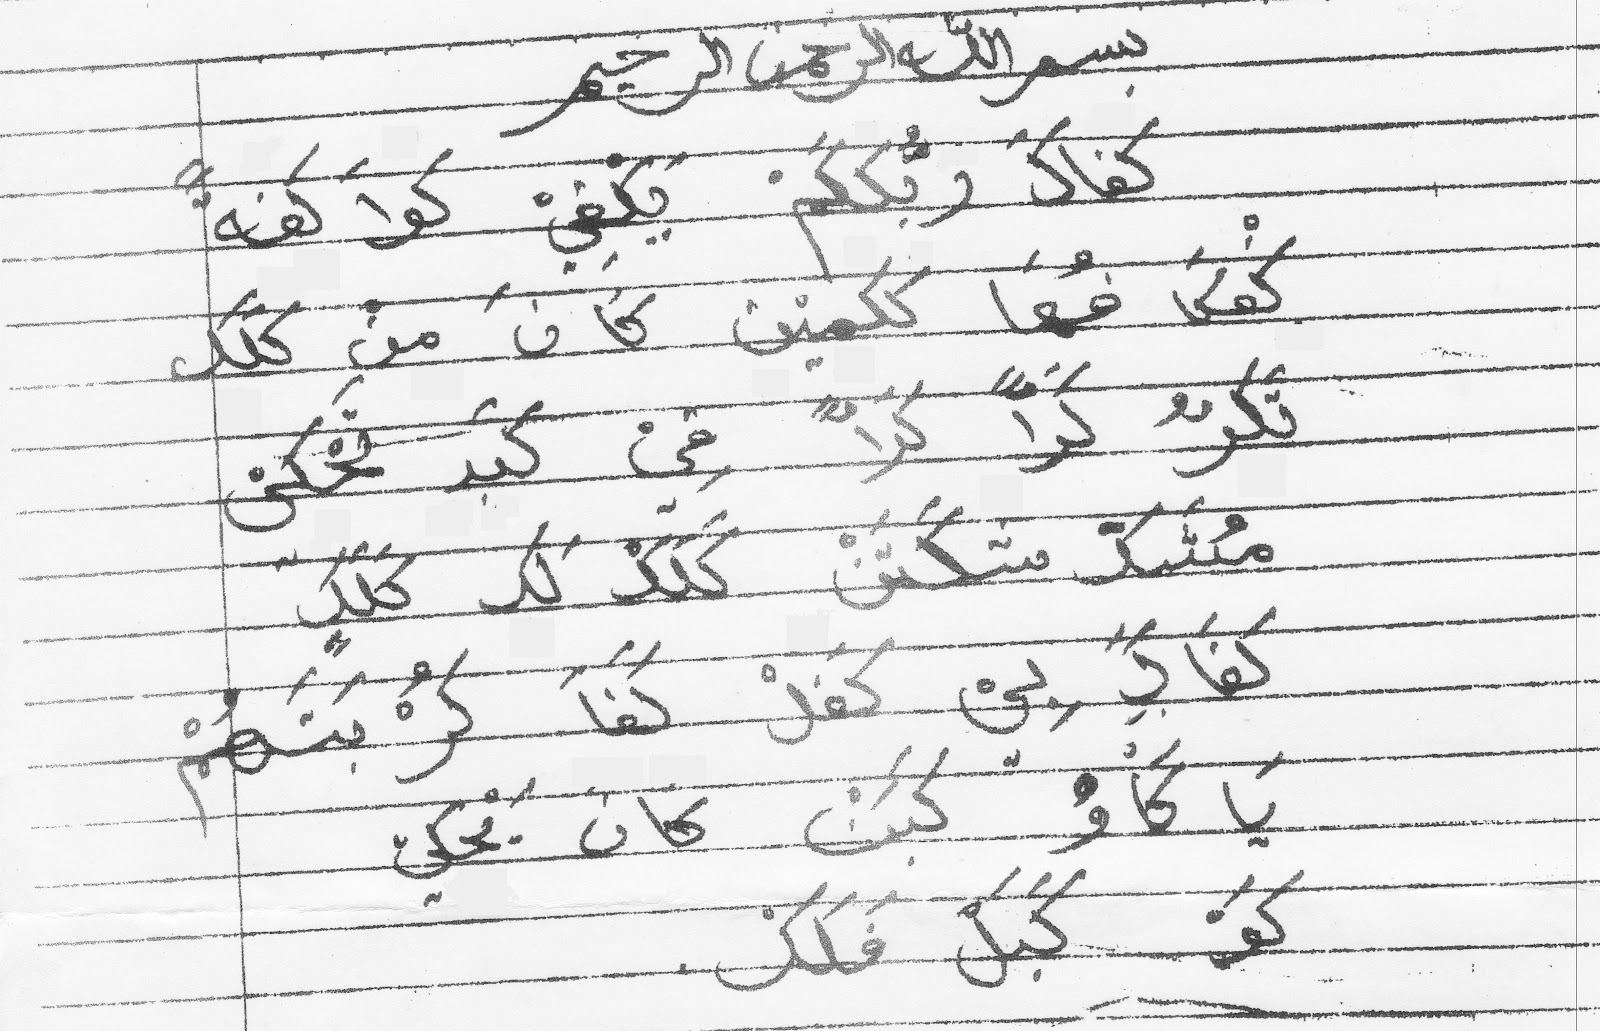 بسم الله الرحمن الرحيم
كَفَاكَ رَبُّكَكُمْ يَكْفِيْ كَوَا كَفَةً
كَفْكَا فُهَا كَكَمِيْن كَانَ مِنْ كَلَكَ
تَكُرُّ كَرًّا كَرًّا فِيْ كَبَدِ تَحْكِيْ
مُشَكَّ شَكَتَّنْ كَلَكْ لَكَ كَلَكٍ
كَفَاكَ بِيْ كَفَلْ كَفَا كُرْبَتَهُمْ
يَا كَاوُ كَبَّنْ كَانَ يَحْكِيْ
كَوْ كَبَلْ فَلَكْ